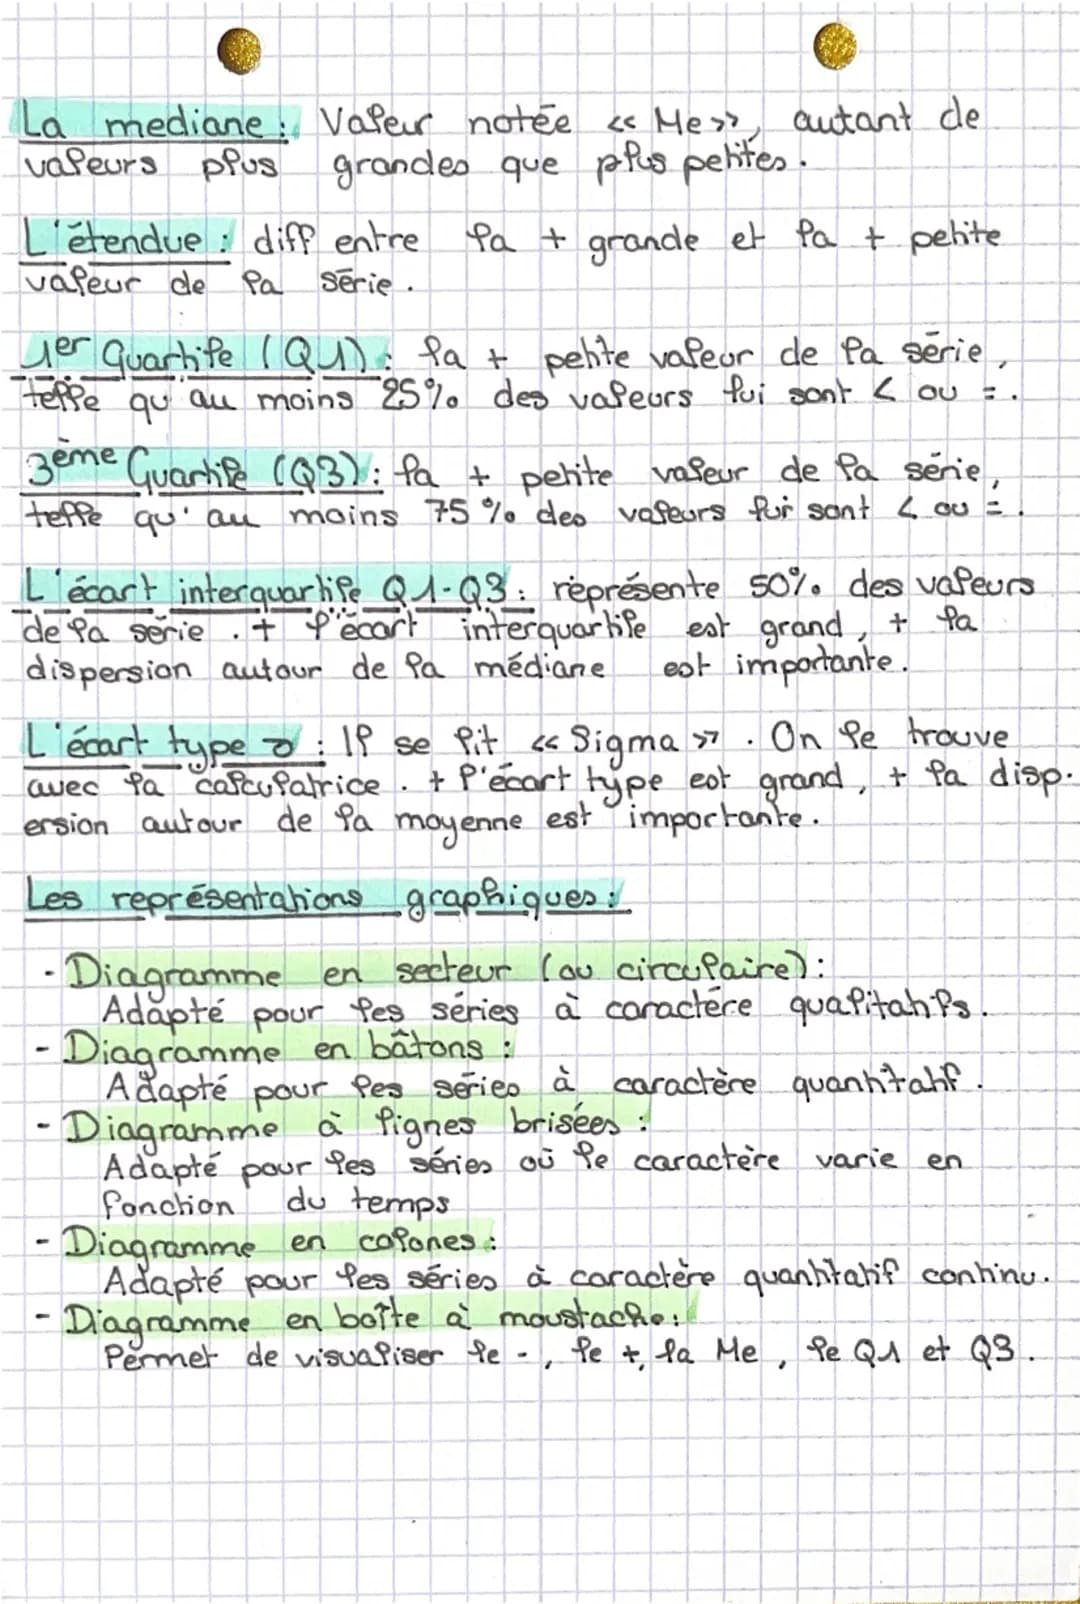 La mediane : Valeur notée « Me », autant de
valeurs plus grandes que plus petites.
L'étendue : diff entre la + grande et la + petite
valeur de la série.
1er Quartile (Q1) : la + petite valeur de la série,
telle qu'au moins 25% des valeurs lui sont < ou =.
3ème Quartile (Q3) : la + petite valeur de la série,
telle qu'au moins 75% des valeurs lui sont < ou =.
L'écart interquartile Q1-Q3 : représente 50% des valeurs
de la série. + l'écart interquartile est grand, + la
dispersion autour de la médiane est importante.
L'écart type σ : Il se lit « Sigma ». On le trouve
avec la calculatrice. + l'écart type est grand, + la disp-
ersion autour de la moyenne est importante.
Les représentations graphiques :
- Diagramme en secteur (ou circulaire) :
Adapté pour les séries à caractère qualitatifs.
- Diagramme en bâtons :
Adapté pour les séries à caractère quantitatif.
- Diagramme à lignes brisées :
Adapté pour les séries où le caractère varie en
fonction du temps
- Diagramme en colones :
Adapté pour les séries à caractère quantitatif continu.
- Diagramme en boîte à moustache :
Permet de visualiser le -, le +, la Me, le Q1 et Q3.